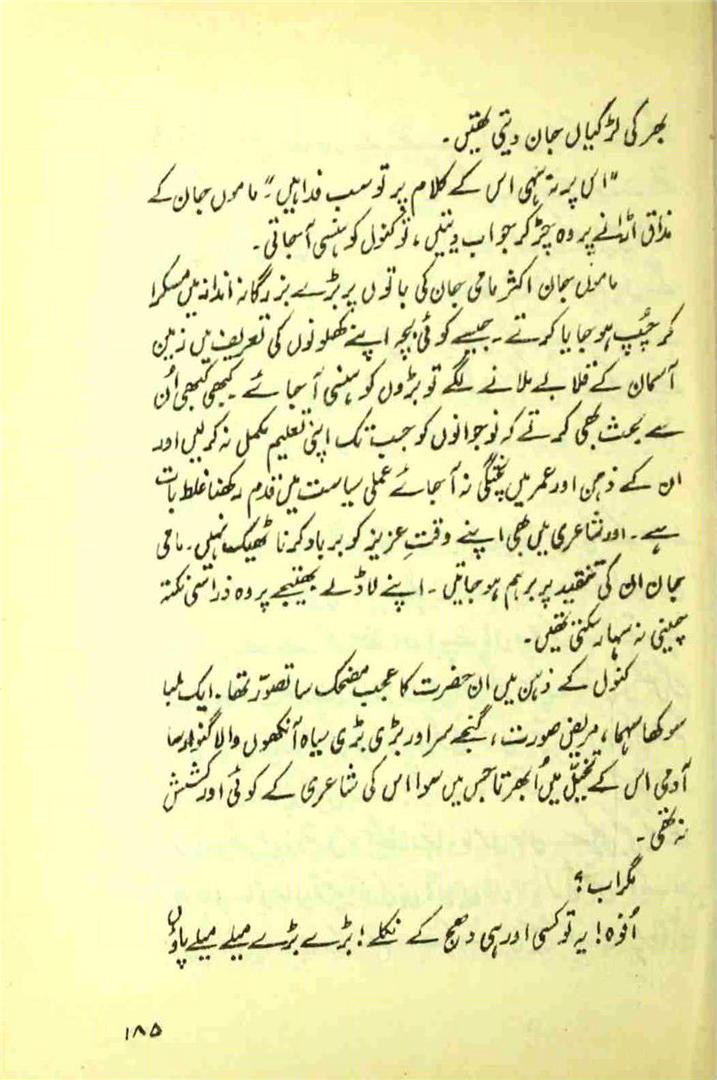 بھر کی لڑکیاں جان دیتی تھیں۔
"اس پر نہ سہی اس کے کلام پر تو سب فدا ہیں"۔ ماموں جان کے
مذاق اڑانے پر وہ چڑ کر جواب دیتیں، تو کنول کو ہنسی آ جاتی۔
ماموں جان اکثر مامی جان کی باتوں پر بڑے بزرگانہ انداز میں مسکرا
کر چُپ ہو جایا کرتے۔ جیسے کوئی بچہ اپنے کھلونوں کی تعریف میں زمین
آسمان کے قلابے ملانے لگے تو بڑوں کو ہنسی آ جائے۔ کبھی کبھی اُن
سے بحث بھی کرتے کہ نوجوانوں کو جب تک اپنی تعلیم مکمل نہ کرلیں اور
ان کے ذہن اور عمر میں پختگی نہ آ جائے عملی سیاست میں قدم رکھنا غلط بات
ہے۔ اور شاعری میں بھی اپنے وقتِ عزیز کو برباد کرنا ٹھیک نہیں۔ مامی
جان ان کی تنقید پر برہم ہو جاتیں۔ اپنے لاڈلے بھتیجے پر وہ ذرا سی نکتہ
چینی نہ سہار سکتی تھیں۔
کنول کے ذہن میں ان حضرت کا عجب مضحک سا تصوّر تھا۔ ایک لمبا
سوکھا سہما، مریض صورت، گنجے سر اور بڑی بڑی سیاہ آنکھوں والا گنوار سا
آدمی اس کے تخیّل میں اُبھرتا جس میں سوا اس کی شاعری کے کوئی اور کشش
نہ تھی۔
مگر اب؟
اُفوہ! یہ تو کسی اور ہی دھج کے نکلے! بڑے بڑے میلے میلے پاؤں
۱۸۵